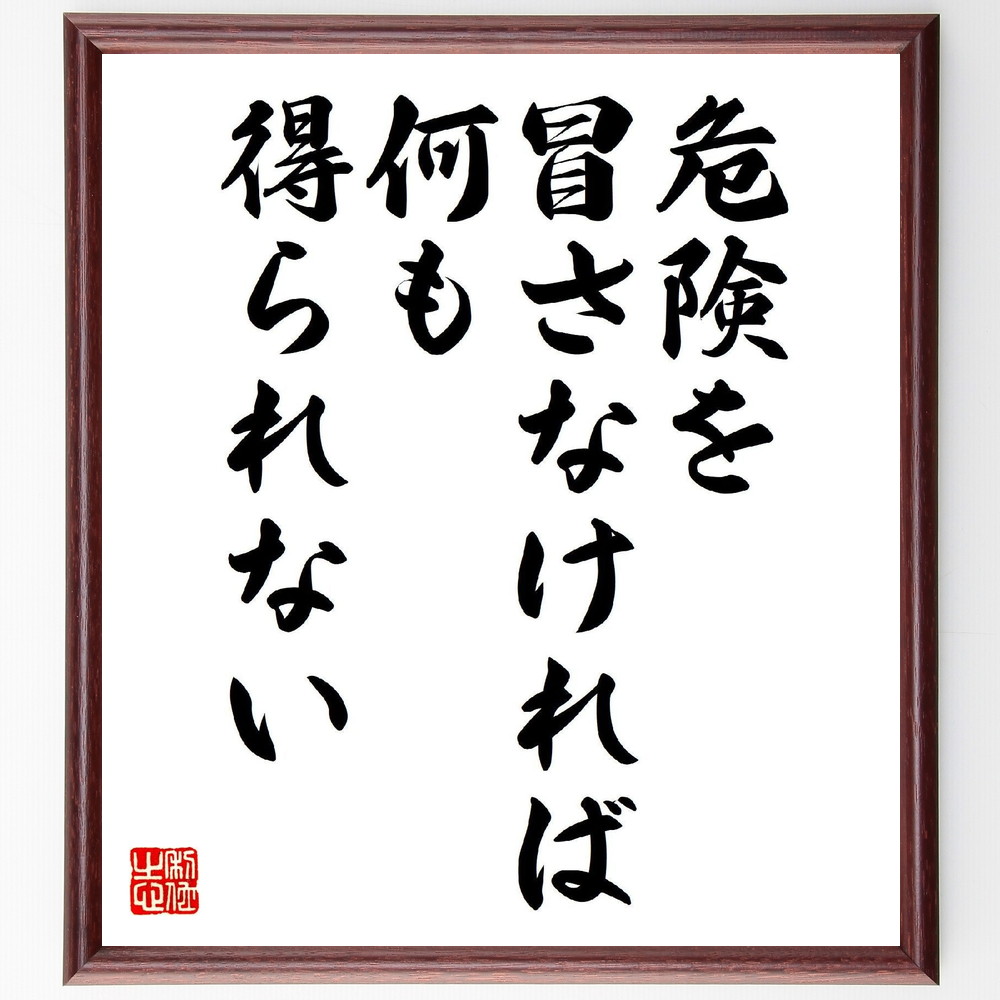 危険を
冒さなければ
何も
得られない